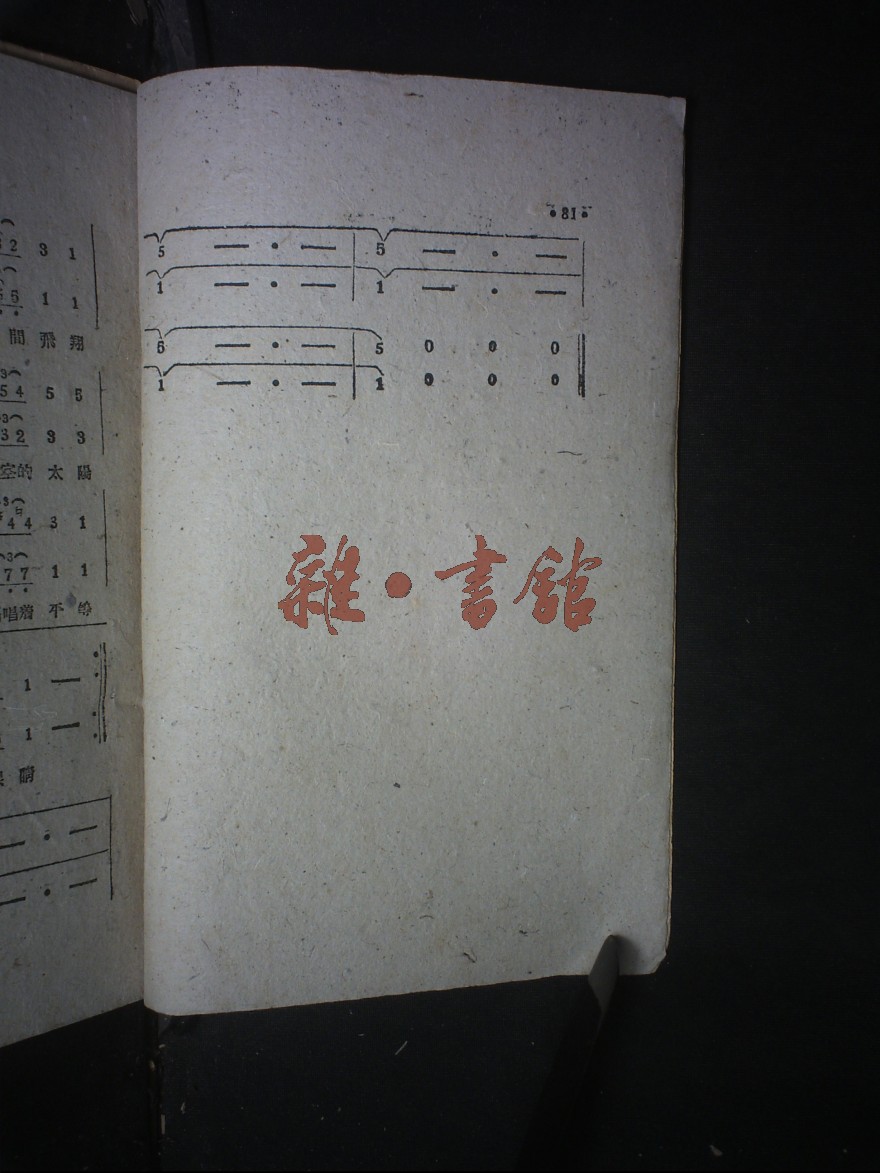 3 1
1 1
間飛翔
5 4 5 5
3 2 3 3
的太陽
4 4 3 1
7 7 1 1
唱着平等
1 —
1 —
— · —
— · —
• 81 •
5 — · — | 5 — · —
1 — · — | 1 — · —
5 — · — | 5 0 0 0
1 — · — | 1 0 0 0
雜·書館